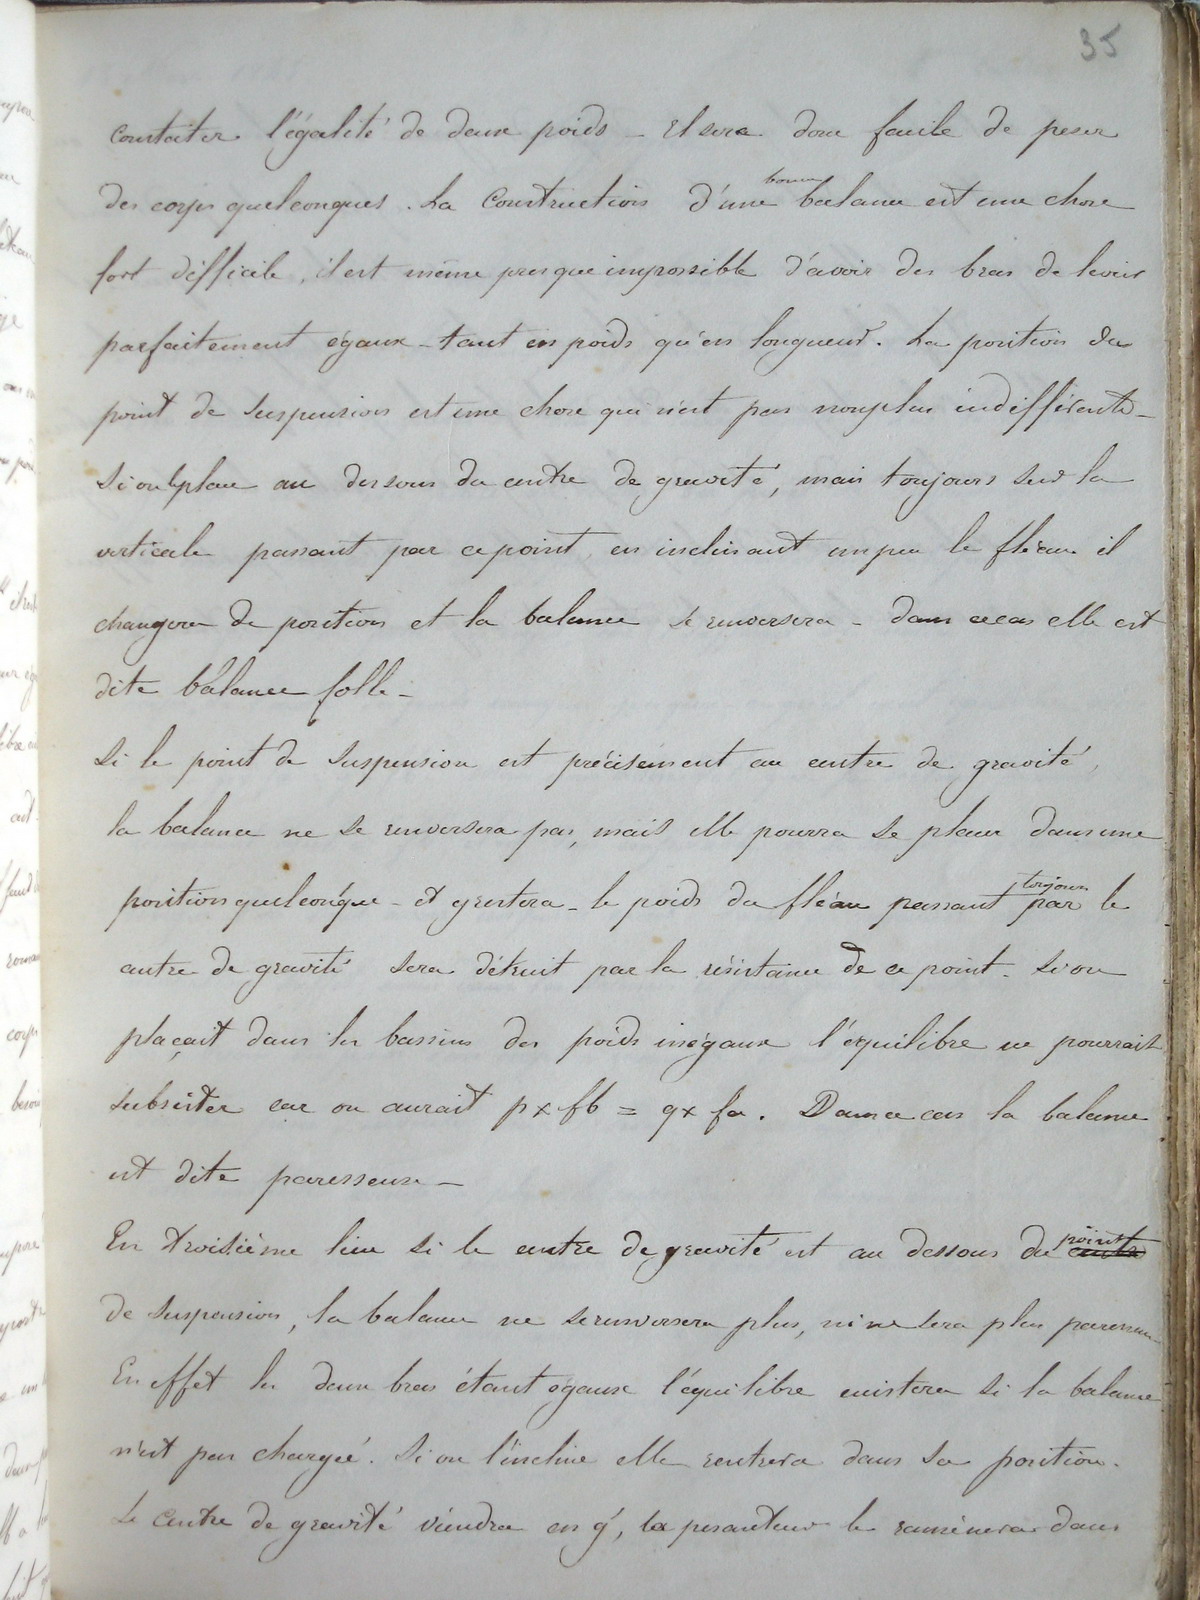 35
constater l'égalité de deux poids _ Il sera donc facile de peser
des corps quelconques. La Construction d'une bonne balance est une chose
fort difficile, il est même presque impossible d'avoir des bras de levier
parfaitement égaux _ tant en poids qu'en longueur. La position du
point de suspension est une chose qui n'est pas non plus indifférente _
Si on le place au dessous du centre de gravité, mais toujours sur la
verticale passant par ce point, en inclinant un peu le fléau il
changera de position et la balance se renversera _ dans ce cas elle est
dite balance folle _
Si le point de suspension est précisément au centre de gravité,
la balance ne se renversera pas, mais elle pourra se placer dans une
position quelconque _ et y restera _ le poids du fléau passant toujours par le
centre de gravité sera détruit par la résistance de ce point. Si on
plaçait dans les bassins des poids inégaux l'équilibre ne pourrait
subsister car on aurait p x fb = q x fa. Dans ce cas la balance
est dite paresseuse _
En troisième lieu si le centre de gravité est au dessous du point
de suspension, la balance ne se renversera plus, ni ne sera plus paresseuse
En effet les deux bras étant égaux l'équilibre existera si la balance
n'est pas chargée. Si on l'incline elle rentrera dans sa position.
Le centre de gravité viendra en g', la pesanteur le ramènera dans